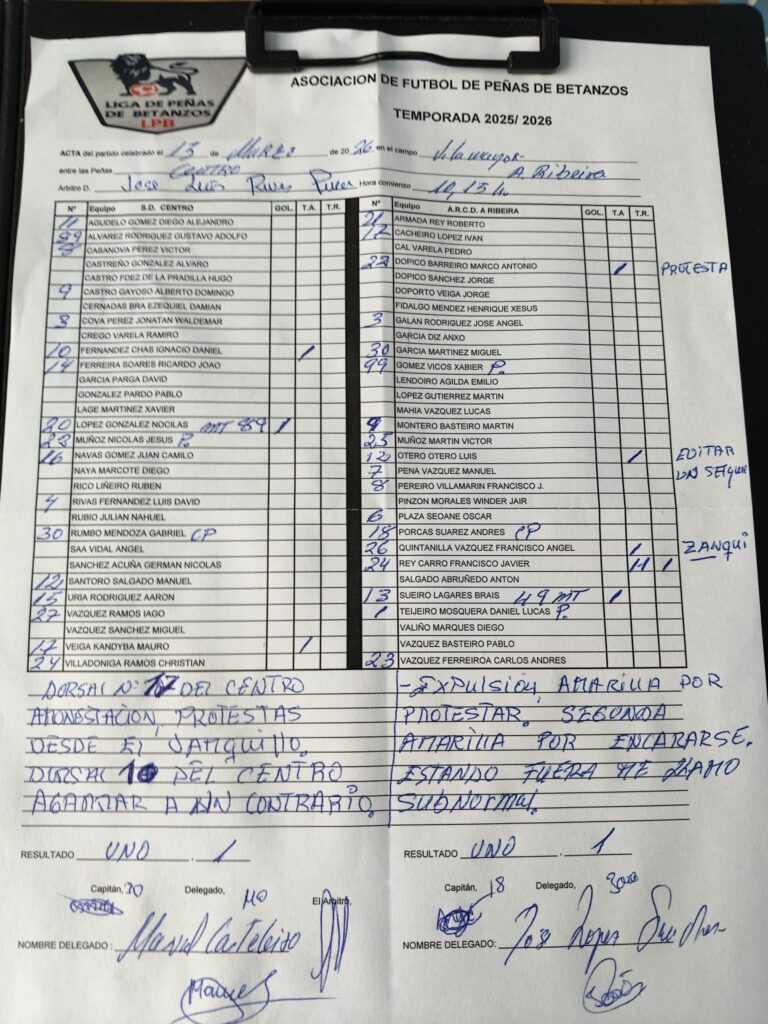 LIGA DE PEÑAS
DE BETANZOS
LPB
ASOCIACION DE FUTBOL DE PEÑAS DE BETANZOS
TEMPORADA 2025/ 2026
ACTA del partido celebrado el 13 de MARZO de 2026 en el campo Vilamayor
entre las Peñas CENTRO A. Ribeira
Arbitro D. Jose Luis Hora comienzo 10,15 h.
Nº Equipo S.D. CENTRO GOL. T.A. T.R.
11 AGUDELO GOMEZ DIEGO ALEJANDRO
99 ALVAREZ RODRIGUEZ GUSTAVO ADOLFO
CASANOVA PEREZ VICTOR
CASTREÑO GONZALEZ ALVARO
CASTRO FDEZ DE LA PRADILLA HUGO
9 CASTRO GAYOSO ALBERTO DOMINGO
CERNADAS BRA EZEQUIEL DAMIAN
3 COVA PEREZ JONATAN WALDEMAR
CREGO VARELA RAMIRO
10 FERNANDEZ CHAS IGNACIO DANIEL /
14 FERREIRA SOARES RICARDO JOAO
GARCIA PARGA DAVID
GONZALEZ PARDO PABLO
LAGE MARTINEZ XAVIER
20 LOPEZ GONZALEZ NOCILAS MT 89 1
22 MUÑOZ NICOLAS JESUS P.
16 NAVAS GOMEZ JUAN CAMILO
NAYA MARCOTE DIEGO
RICO LIÑEIRO RUBEN
4 RIVAS FERNANDEZ LUIS DAVID
RUBIO JULIAN NAHUEL
30 RUMBO MENDOZA GABRIEL CP
SAA VIDAL ANGEL
SANCHEZ ACUÑA GERMAN NICOLAS
12 SANTORO SALGADO MANUEL
15 URIA RODRIGUEZ AARON
27 VAZQUEZ RAMOS IAGO
VAZQUEZ SANCHEZ MIGUEL
17 VEIGA KANDYBA MAURO /
24 VILLADONIGA RAMOS CHRISTIAN
Nº Equipo A.R.C.D. A RIBEIRA GOL. T.A T.R.
21 ARMADA REY ROBERTO
17 CACHEIRO LOPEZ IVAN
CAL VARELA PEDRO
22 DOPICO BARREIRO MARCO ANTONIO / PROTESTA
DOPICO SANCHEZ JORGE
DOPORTO VEIGA JORGE
FIDALGO MENDEZ HENRIQUE XESUS
3 GALAN RODRIGUEZ JOSE ANGEL
GARCIA DIZ ANXO
30 GARCIA MARTINEZ MIGUEL
99 GOMEZ VICOS XABIER P.
LENDOIRO AGILDA EMILIO
LOPEZ GUTIERREZ MARTIN
MAHIA VAZQUEZ LUCAS
9 MONTERO BASTEIRO MARTIN
25 MUÑOZ MARTIN VICTOR
12 OTERO OTERO LUIS / EVITAR
7 PENA VAZQUEZ MANUEL UN
8 PEREIRO VILLAMARIN FRANCISCO J.
PINZON MORALES WINDER JAIR
6 PLAZA SEOANE OSCAR
18 PORCAS SUAREZ ANDRES CP
26 QUINTANILLA VAZQUEZ FRANCISCO ANGEL / ZANQUI
24 REY CARRO FRANCISCO JAVIER 11 1
SALGADO ABRUÑEDO ANTON
13 SUEIRO LAGARES BRAIS 49 MT 1
1 TEIJEIRO MOSQUERA DANIEL LUCAS P.
VALIÑO MARQUES DIEGO
VAZQUEZ BASTEIRO PABLO
23 VAZQUEZ FERREIROA CARLOS ANDRES
DORSAL Nº 17 DEL CENTRO
AMONESTACION, PROTESTAS
DESDE EL VANQUILLO.
DORSAL 10 DEL CENTRO
AGARRAR A UN CONTRARIO.
-EXPULSIÓN, AMARILLA POR
PROTESTAR, SEGUNDA
AMARILLA POR ENCARARSE.
ESTANDO FUERA ME LLAMO
SUBNORMAL.
RESULTADO UNO . 1
RESULTADO UNO . 1
Capitán, 30 Delegado, El Arbitro,
Capitán, 18 Delegado,
NOMBRE DELEGADO : Manuel Casteleiro
NOMBRE DELEGADO: Jose Lopez Sanchez
Manuel